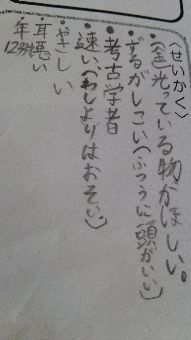 〈せいかく〉
・(金)光っている物がほしい。
・ずるがしこい(ふつうに頭がいい)
・考古学者
・速い(わしよりはおそい)
・やさしい
・耳悪い
・年12才